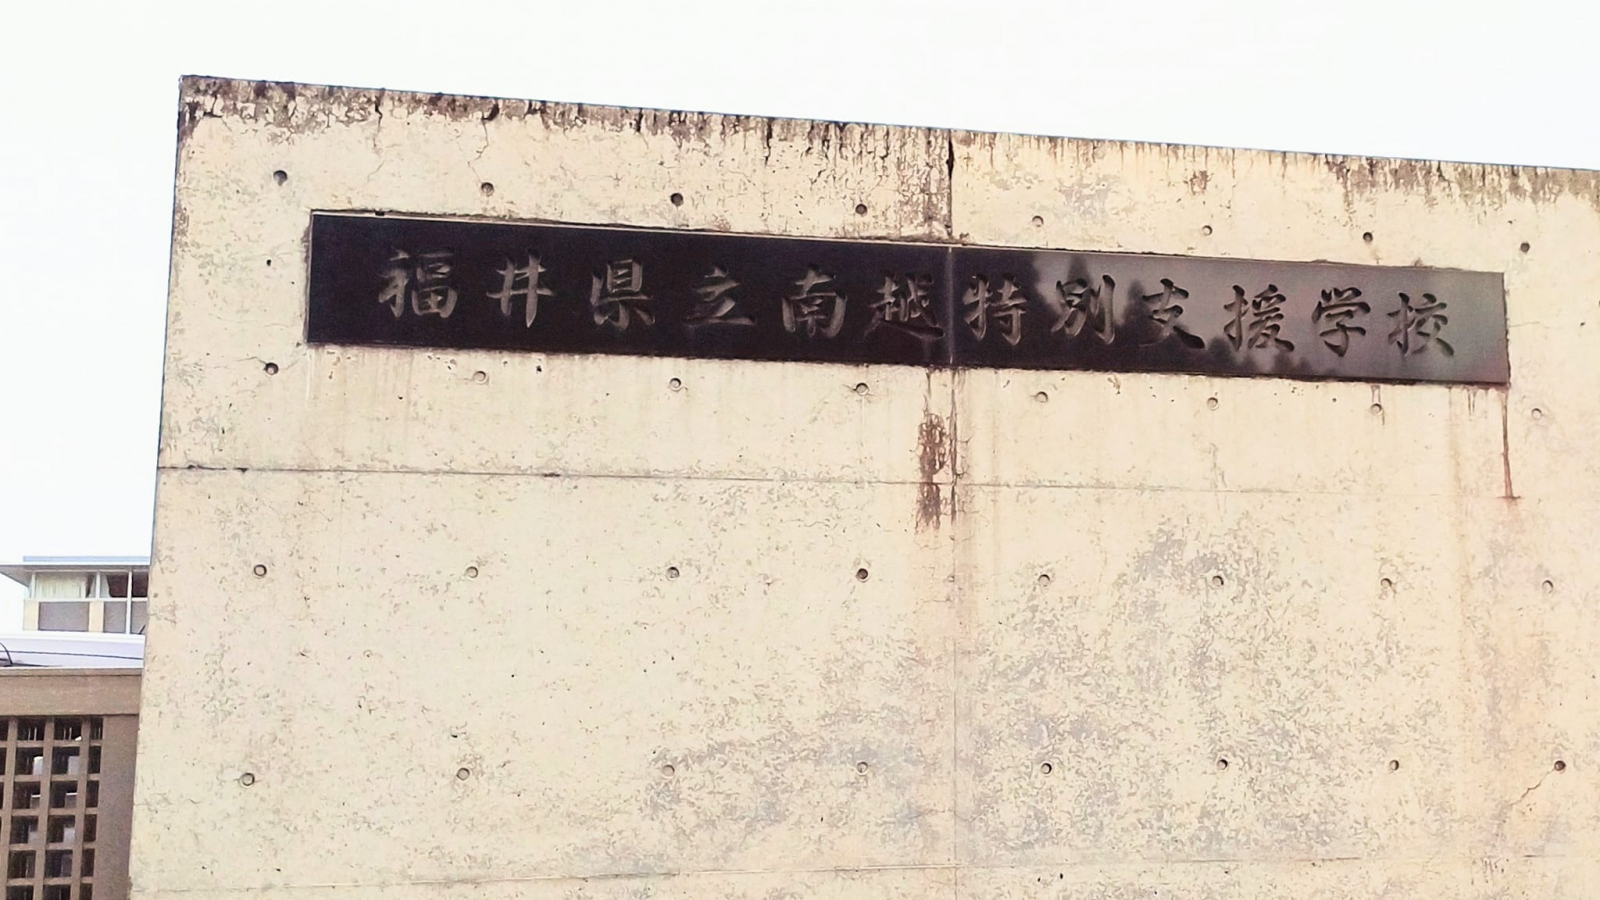 福井県立南越特別支援学校